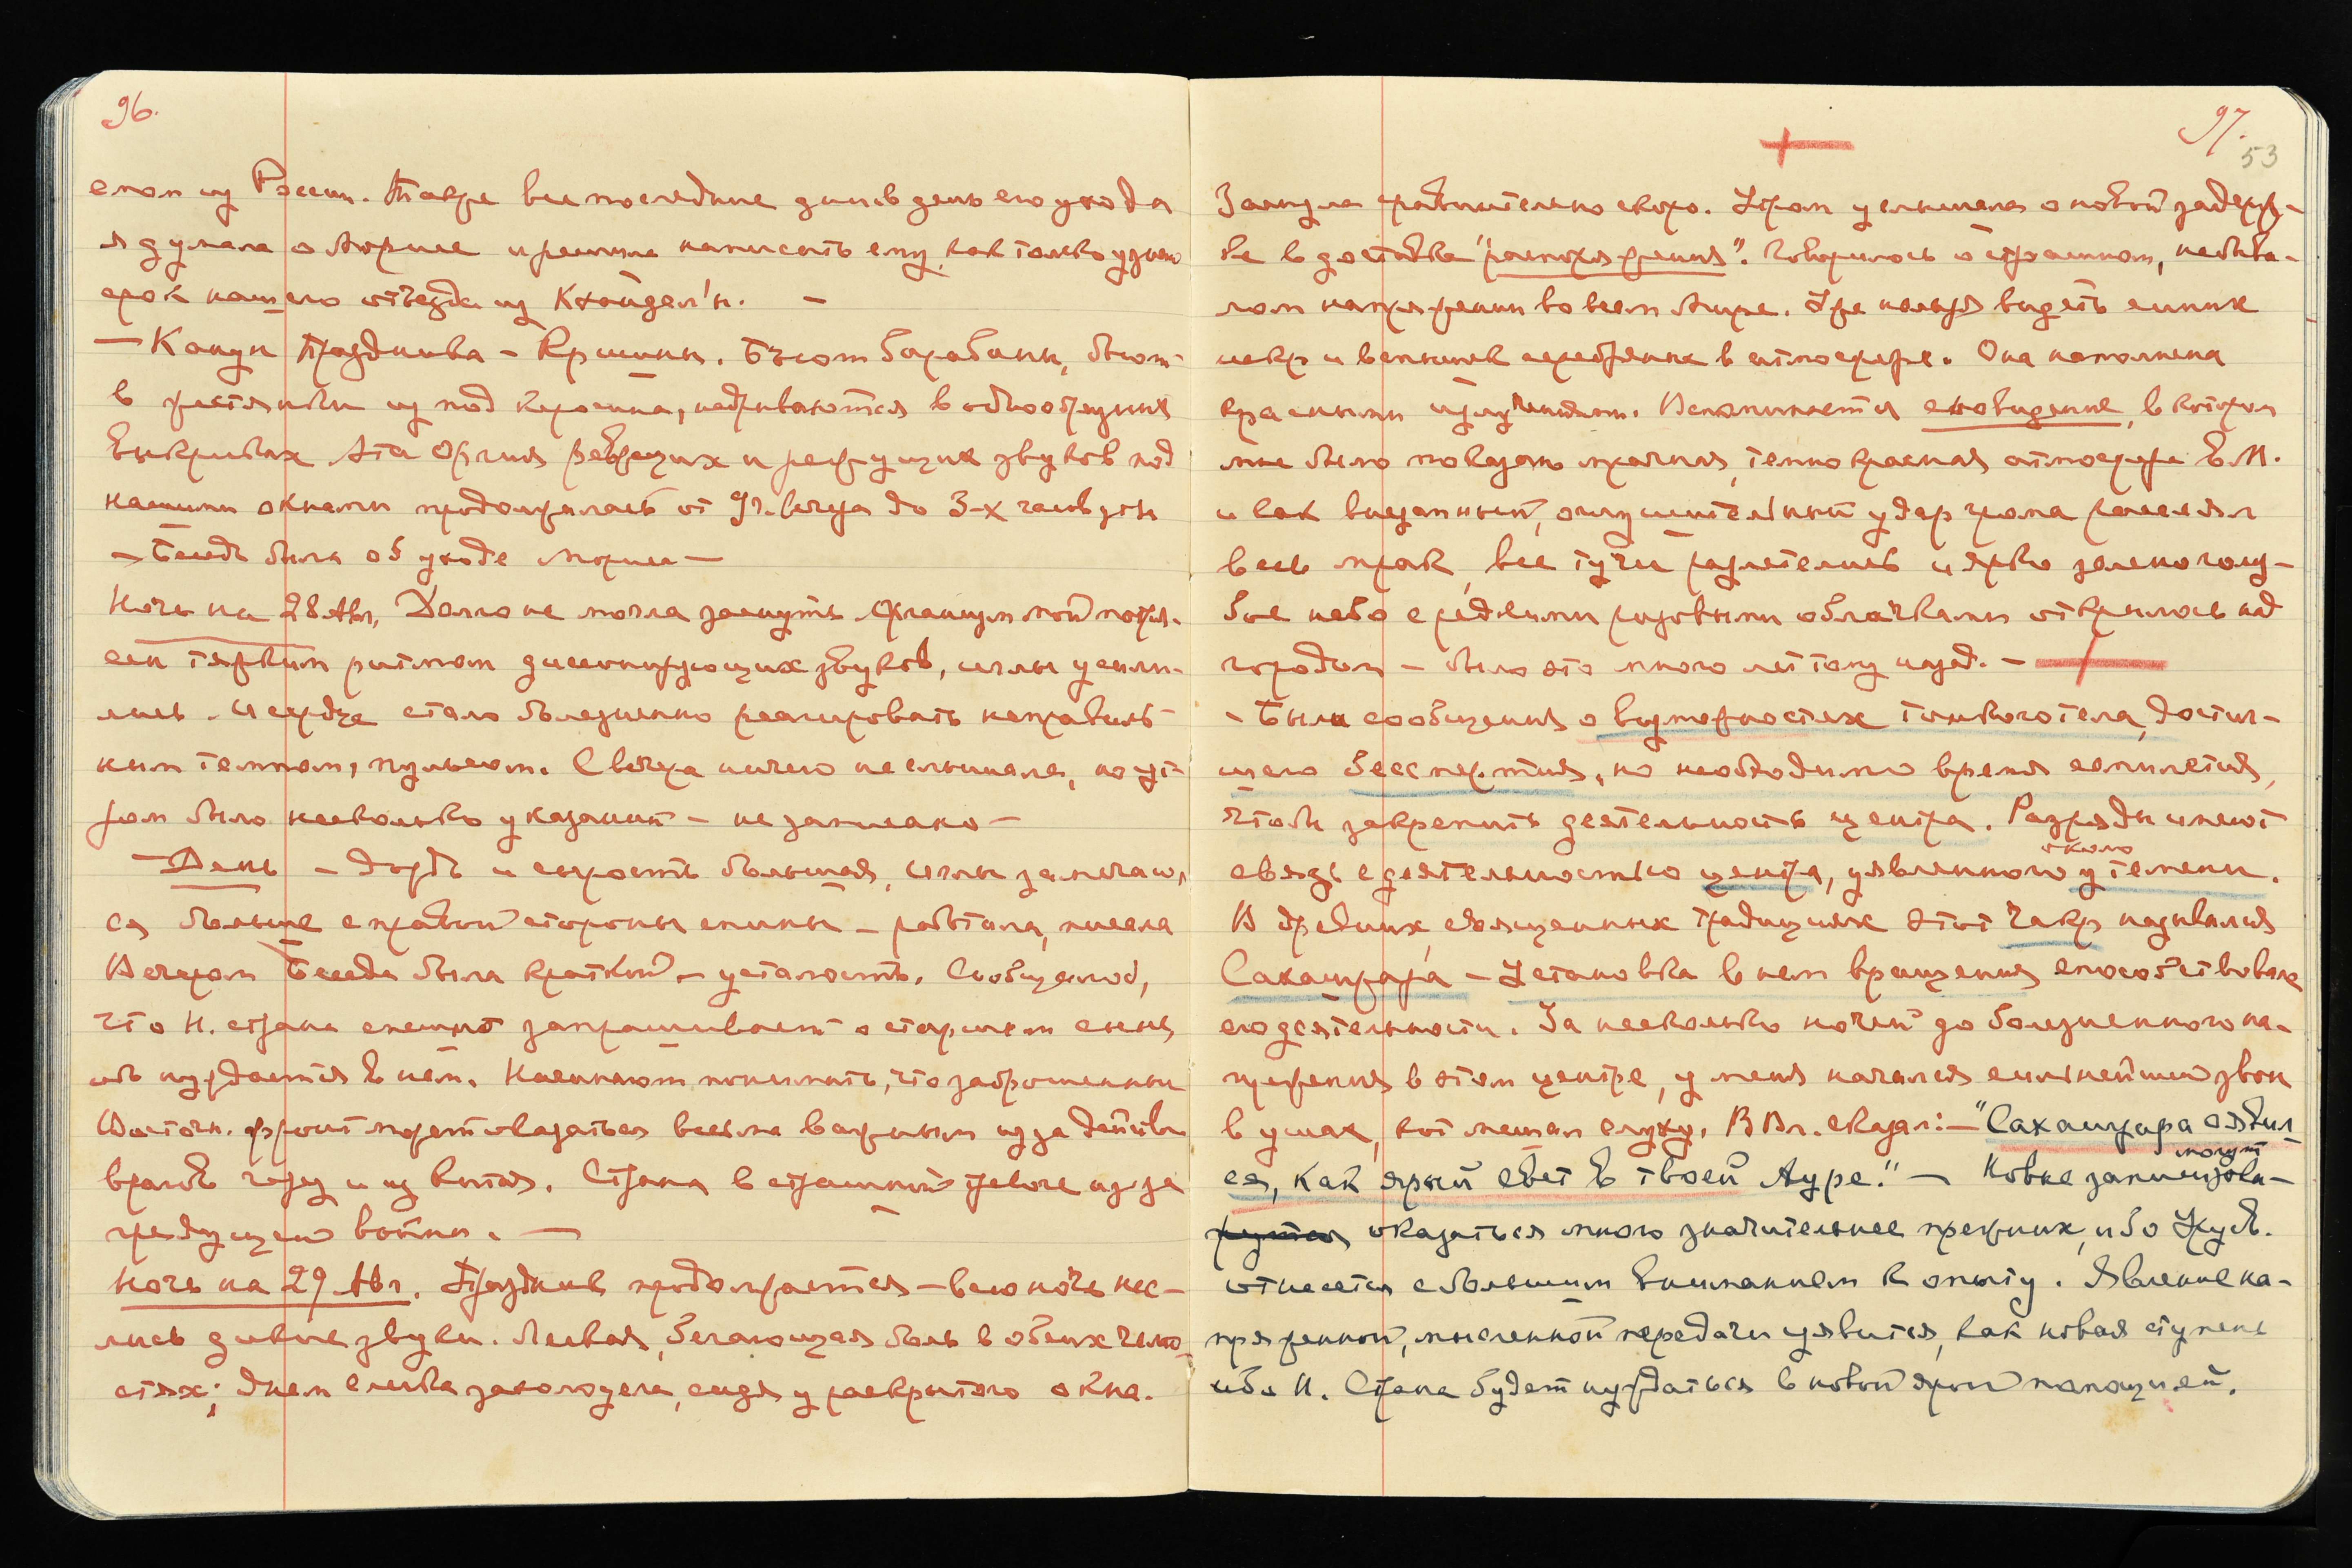 96.
слом из России. Также все последние дни в день его ухода
я думала о Морисе и решила написать ему, как только узнаю
срок нашего отъезда из Кхандал'ы. —
— Канун Праздника – Кришны. Бьют барабаны, бьют
в жестянки из под керосина, надрываются в
выкриках эта оргия ревущих и режущих звуков под
нашими окнами продолжалась от 9 ч. вечера до 3-х часов дня
– Беседа была об уходе Мориса —
Ночь на 28 Авг. Долго не могла заснуть организм мой потря-
сен тяжким ритмом диссонирующих звуков, иглы усили-
лись. И сердце стало болезненно реагировать неправиль-
ным темпом, пульсом. С вечера ничего не слышала, но ут-
ром было несколько указаний – не записано –
— День – дождь и сырость большая, иглы замечаю,
ся больше с правой стороны спины – работала, писала
Вечером Беседа была краткой – усталость. Сообщалось,
что Н. страна спешно запрашивает о старшем сыне
ибо нуждается в нём. Начинают понимать, что заброшенный
Восточн. фронт может оказаться весьма важным из за действ
врагов через и из Китая. Страна в страшной тревоге из-за
грядущей войны. —
Ночь на 29 Авг. Праздник продолжается – всю ночь нес-
лись дикие звуки. Легкая, бегающая боль в обеих челю-
стях; днем слегка захолодела, сидя у раскрытого окна.
97.
53
Заснула сравнительно скоро. Утром услышала о новой задерж-
ке в доставке "распоряжения". Говорилось о страшном, небыва-
лом напряжении во всем Мире. Уже нельзя видеть синих
искр и вспышек серебряных в атмосфере. Она наполнена
красными излучениями. Вспоминается сновидение, в котором
мне было показано мрачная, темно красная атмосфера В.М.
и как внезапный, оглушительный удар грома рассеял
весь мрак, все тучи разлетелись и ярко зелено голу-
бое небо с редкими розовыми облачками открылось над
городом – было это много лет тому назад. –
– Были сообщения о возможностях тонкого тела, достиг-
шего бессмертия, но необходимо время
чтобы закрепить деятельность центра. Разряды имеют
связь с деятельностью центра, уявленного у темени.
около
В древних, священных традициях этот Чакр назывался
Сахасрара – Установка в нем вращения способствовала
его деятельности. За несколько ночей до болезненного на-
пряжения в этом центре, у меня начался сильнейший звон
в ушах, кот мешал слуху. В Вл. сказал: – "Сахасрара явил
ся, как яркий свет в твоей Ауре." – Новые записи
могут
оказаться много значительнее прежних, ибо Урусв.
отнесется с большим вниманием к опыту. Явление на-
пряженной, мысленной передачи уявится, как новая ступень
ибо Н. Страна будет нуждаться в новой ярой помощи ей.